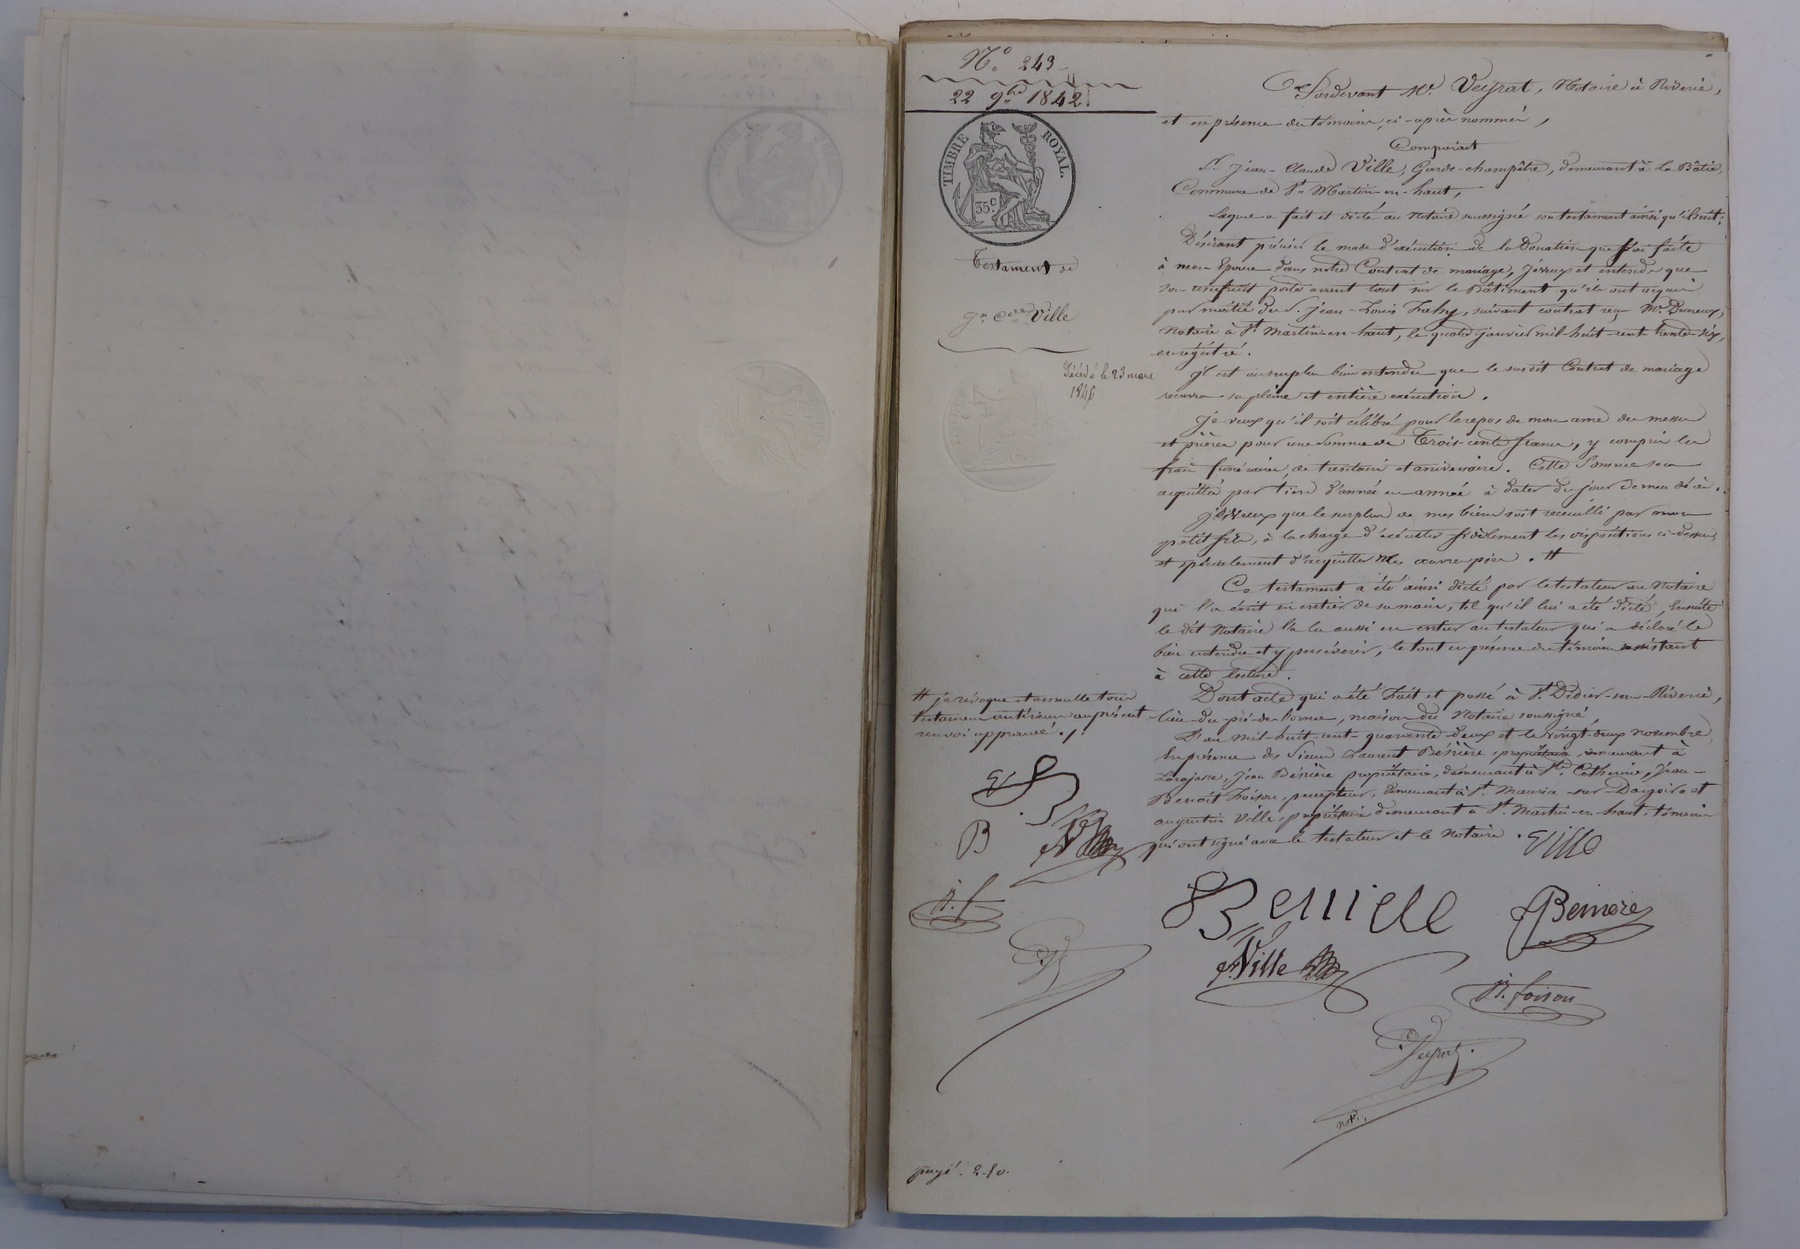 N.° 243
22 9bre 1842
TIMBRE ROYAL.
35 c
Testament de
Jn Cde Ville
Décédé le 23 mars
1846
Pardevant Me Veyrat, Notaire à Riverie,
et en présence des témoins ci-après nommés,
Comparait
Sr Jean-Claude Ville, Garde-champêtre, demeurant à La Bâtie,
Commune de St Martin-en-haut,
Lequel a fait et dicté au Notaire soussigné son testament ainsi qu'il suit:
Désirant préciser le mode d'exécution de la Donation que j'ai faite
à mon Epouse dans notre Contrat de mariage, je veux et entends que
son usufruit porte avant tout sur le Bâtiment qu'ils ont acquis
par moitié du S. Jean-Louis, suivant contrat reçu Me,
Notaire à St Martin-en-haut, le quatre janvier mil-huit-cent trente-six,
enregistré.
Il est au surplus bien entendu que le susdit Contrat de mariage
recevra sa pleine et entière exécution.
Je veux qu'il soit célébré pour le repos de mon ame des messes
et prières pour une Somme de Trois-cents francs, y compris les
frais funéraires, de trentaine et aniversaire. Cette Somme sera
acquittée par tiers d'année en année à dater du jour de mon décès.
Je veux que le surplus de mes biens soit recueilli par mon
petit fils, à la charge d'exécuter fidèlement les dispositions ci-dessus
et spécialement d'acquitter mes œuvres pies. #
Ce testament a été ainsi dicté par le testateur au Notaire
qui l'a écrit en entier de sa main, tel qu'il lui a été dicté, Ensuite
le dit Notaire l'a lu aussi en entier au testateur qui a déclaré le
bien entendre et y persévérer, le tout en présence des témoins assistant
à cette lecture.
Dont acte qui a été fait et passé à St Didier-sous-Riverie,
lieu du pré-de, maison du Notaire soussigné,
L'an mil-huit-cent-quarante deux et le vingt deux novembre,
En présence des Sieurs Laurent Bérière, propriétaire, demeurant à
Larajasse, Jean Bérière propriétaire, demeurant à Ste Catherine, Jean-
Benoît Foison, percepteur, demeurant à St Maurice-sur-Dargoire et
augustin Ville, propriétaire demeurant à St Martin-en-haut, témoins
qui ont signé avec le testateur et le Notaire. Ville
# je révoque et annulle tous
testamens antérieurs au présent
renvoi approuvé./.
B
Beriere
Berriere
Ville
B. foison
Veyrat
notre
payé. 2.50.